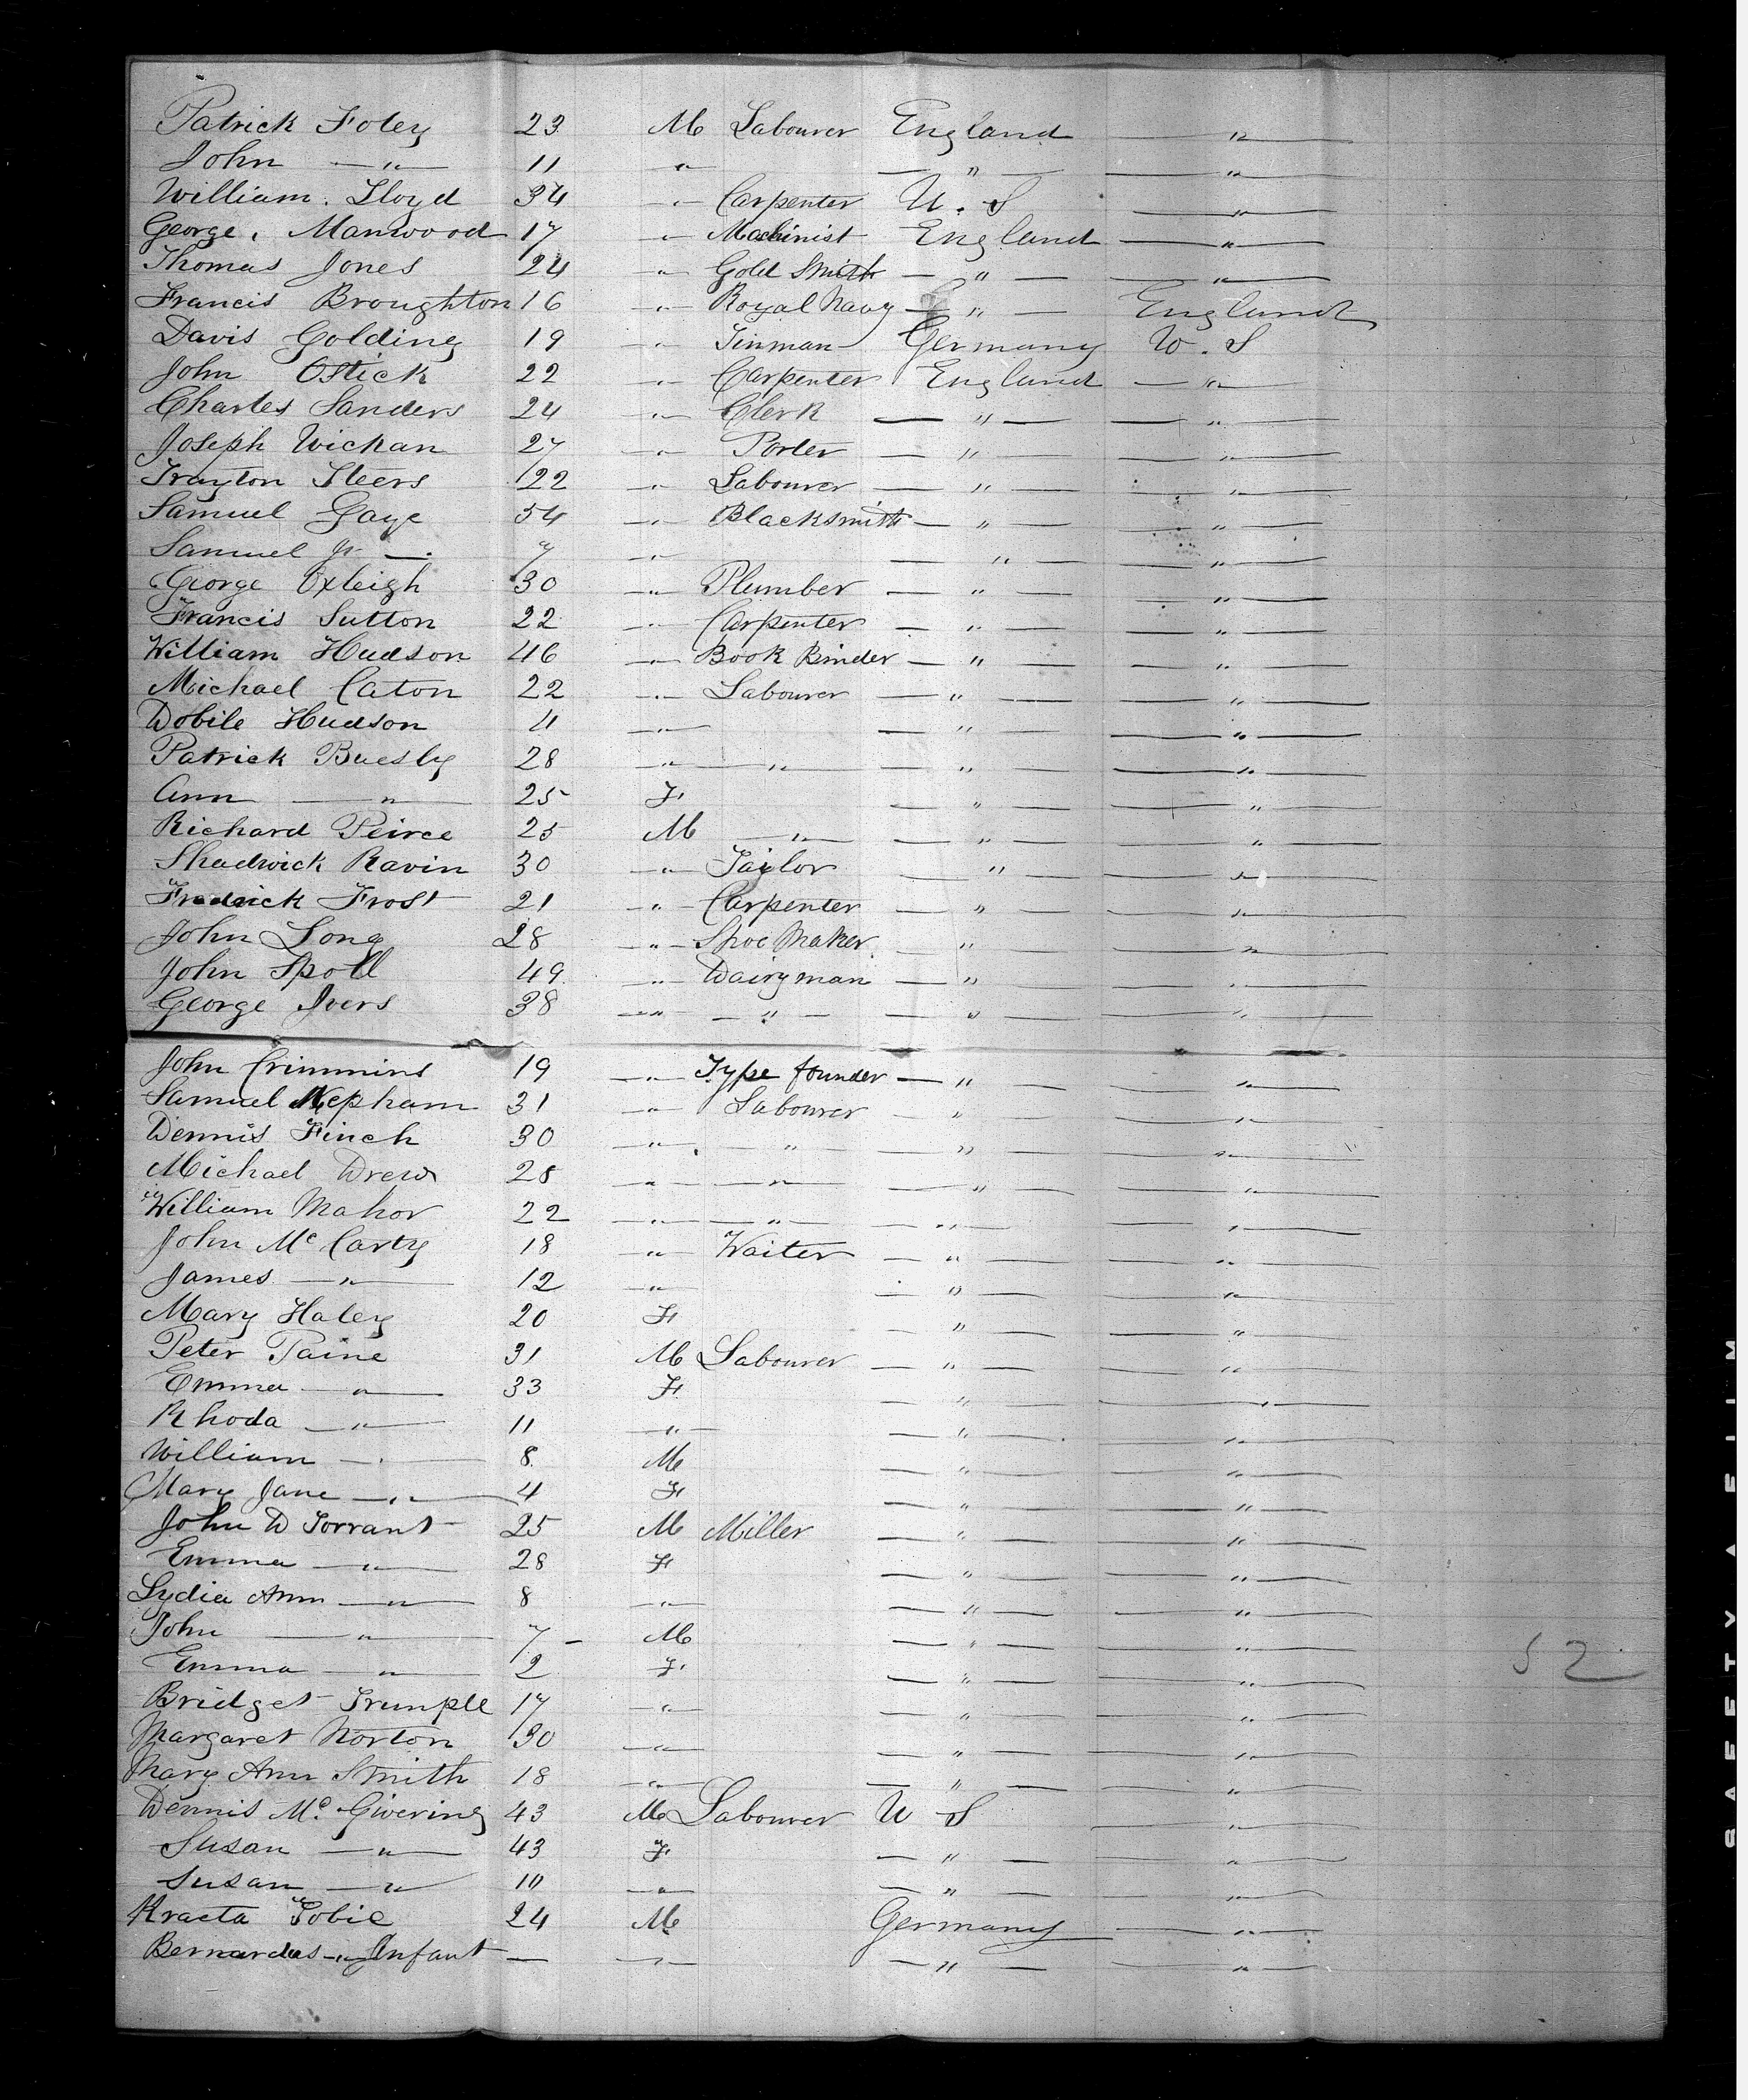 Patrick Foley 23 M Labourer England — " —
John — " — 11 " — " — — " —
William. Lloyd 34 " Carpenter U. S — " —
George. Manwood 17 " Machinist England — " —
Thomas Jones 24 " Gold Smith — " — — " —
Francis Broughton 16 " Royal Navy — " — England
Davis Golding 19 " Tinman Germany U. S
John Ostick 22 " Carpenter England — " —
Charles Sanders 24 " Clerk — " — — " —
Joseph Wickan 27 " Porter — " — — " —
Trayton Steers 22 " Labourer — " — — " —
Samuel Gaye 34 " Blacksmith — " — — " —
Samuel Jr — " 7 " — " — — " —
George Oxleigh 30 " Plumber — " — — " —
Francis Sutton 22 " Carpenter — " — — " —
William Hudson 46 " Book Binder — " — — " —
Michael Caton 22 " Labourer — " — — " —
Dobile Hudson 4 " — " — — " —
Patrick Buesly 28 " — " — — " — — " —
Ann — " — 25 F — " — — " —
Richard Peirce 25 M — " — — " — — " —
Shadwick Ravin 30 " Taylor — " — — " —
Fredrick Frost 21 " Carpenter — " — — " —
John Long 28 " Shoe Maker — " — — " —
John Spoll 49 " Dairyman — " — — " —
George Ivers 38 " — " — — " — — " —
John Crimmins 19 " Type founder — " — — " —
Samuel Mepham 31 " Labourer — " — — " —
Dennis Finch 30 " — " — — " — — " —
Michael Drew 28 " — " — — " — — " —
William Mahor 22 " — " — — " — — " —
John Mc Carty 18 " Waiter — " — — " —
James — " — 12 " — " — — " —
Mary Haley 20 F — " — — " —
Peter Paine 31 M Labourer — " — — " —
Emma — " — 33 F — " — — " —
Rhoda — " — 11 " — " — — " —
William — " 8 M — " — — " —
Mary Jane — " — 4 F — " — — " —
John D Torrant 25 M Miller — " — — " —
Emma — " — 28 F — " — — " —
Lydia Ann — " — 8 " — " — — " —
John — " — 7 M — " — — " —
Emma — " — 2 F — " — — " —
52
Bridget Trumple 17 " — " — — " —
Margaret Norton 30 " — " — — " —
Mary Ann Smith 18 " — " — — " —
Dennis Mc Givering 43 M Labourer U S — " —
Susan — " — 43 F — " — — " —
Susan — " — 10 " — " — — " —
Kracta Tobie 24 M Germany — " —
Bernardus — " — Infant — " — " — — " —
SAFETY A FILM